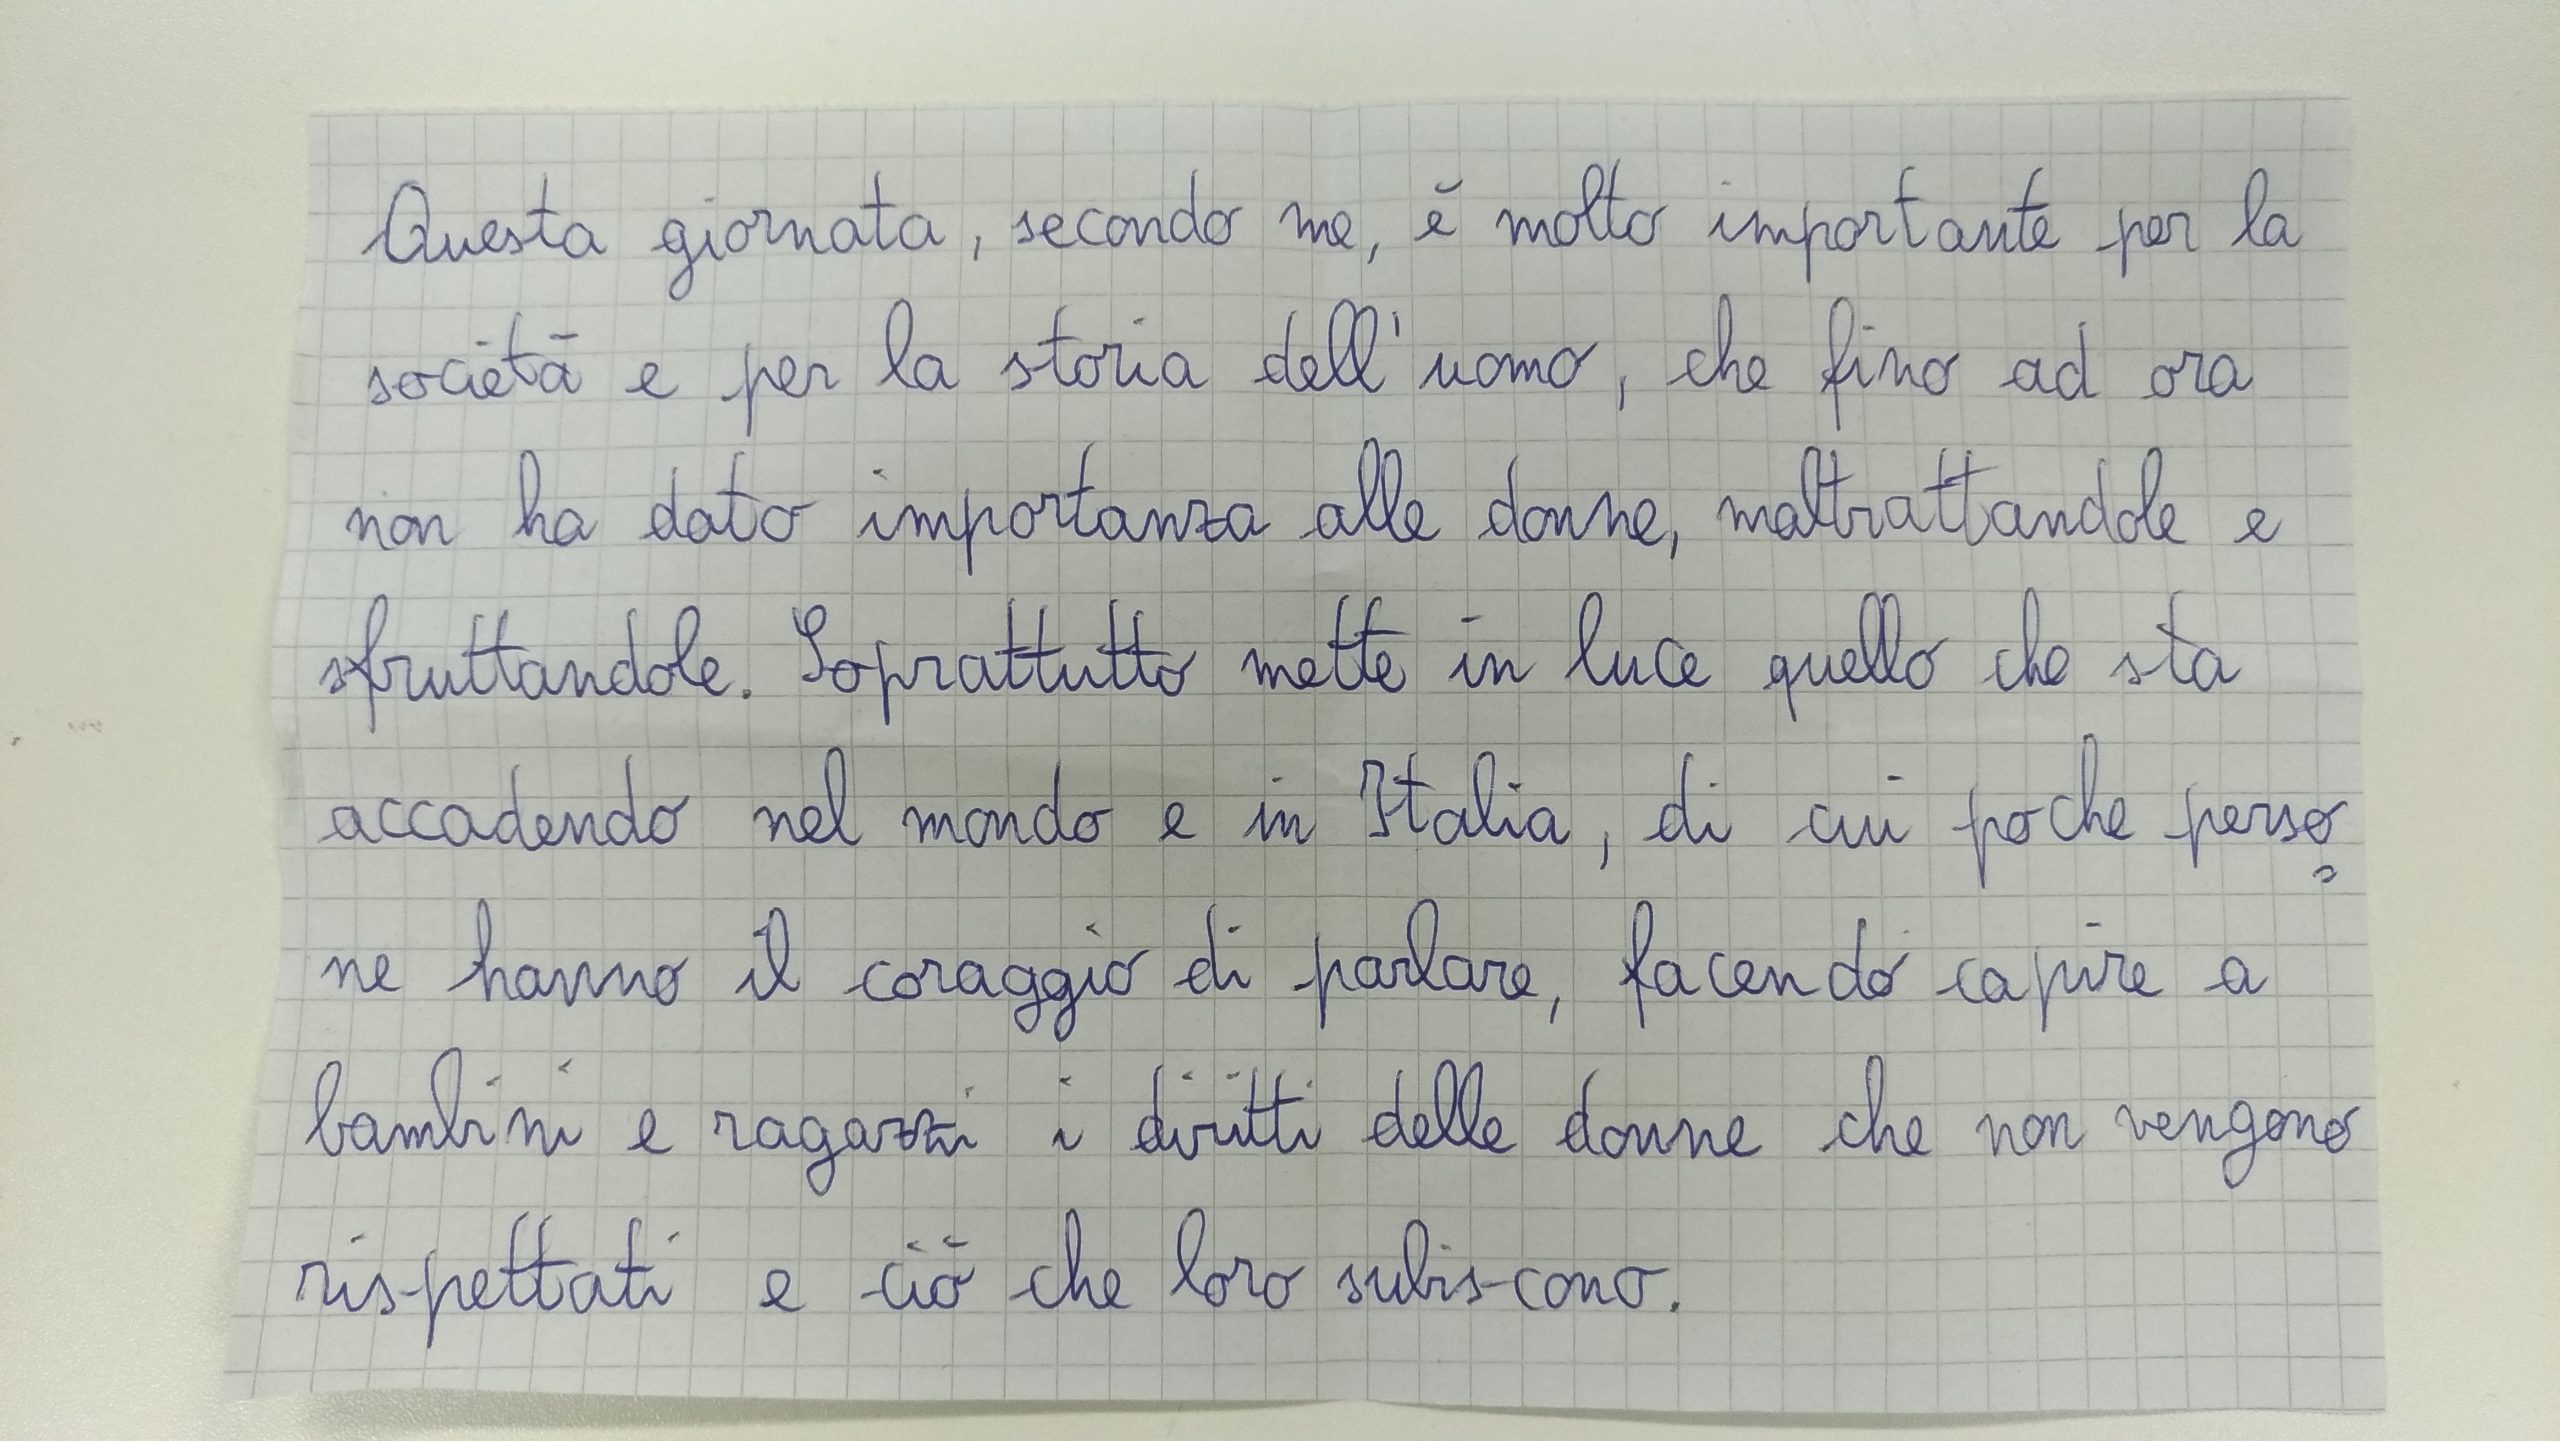 Questa giornata, secondo me, è molto importante per la
società e per la storia dell'uomo, che fino ad ora
non ha dato importanza alle donne, maltrattandole e
sfruttandole. Soprattutto mette in luce quello che sta
accadendo nel mondo e in Italia, di cui poche perso=
ne hanno il coraggio di parlare, facendo capire a
bambini e ragazzi i diritti delle donne che non vengono
rispettati e ciò che loro subiscono.